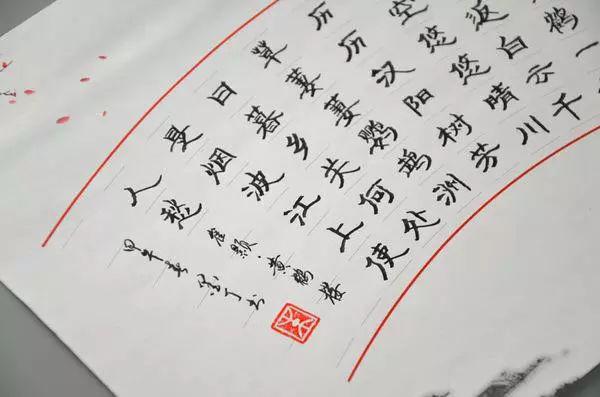 鹤一
返白云千
空悠悠晴川
历历汉阳树芳
草萋萋鹦鹉洲
日暮乡关何处
是烟波江上使
人愁
崔颢·黄鹤楼
甲午春丁书